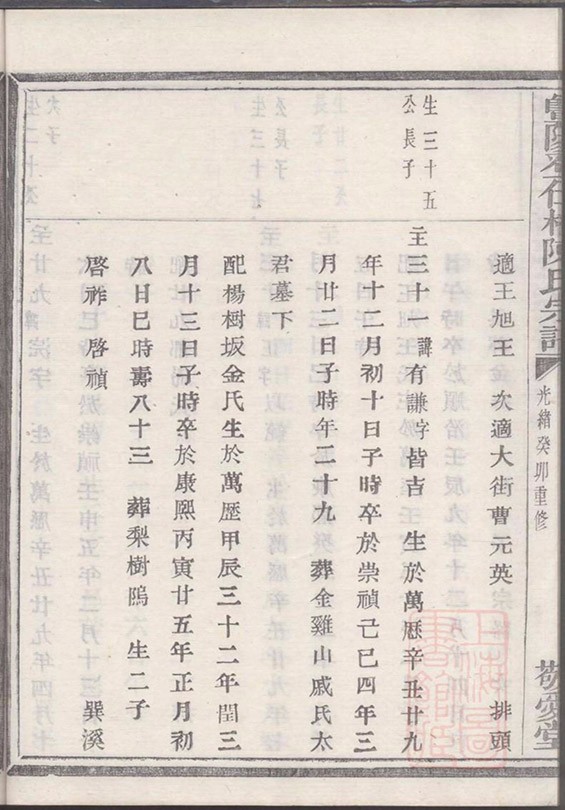 陳氏宗譜
光緒癸卯重修
敬愛堂
適王旭王 次適大街曹元英 排頭
生三十五
公長子
主三十一 諱有謙字皆吉 生於萬歷辛丑廿九
年十二月初十日子時卒於崇禎己巳四年三
月廿二日子時年二十九 葬金雞山戚氏太
君墓下
配楊樹坂金氏生於萬歷甲辰三十二年閏三
月十三日子時卒於康熙丙寅廿五年正月初
八日巳時壽八十三 葬梨樹隖 生二子
啓祚 啓禎 巽溪